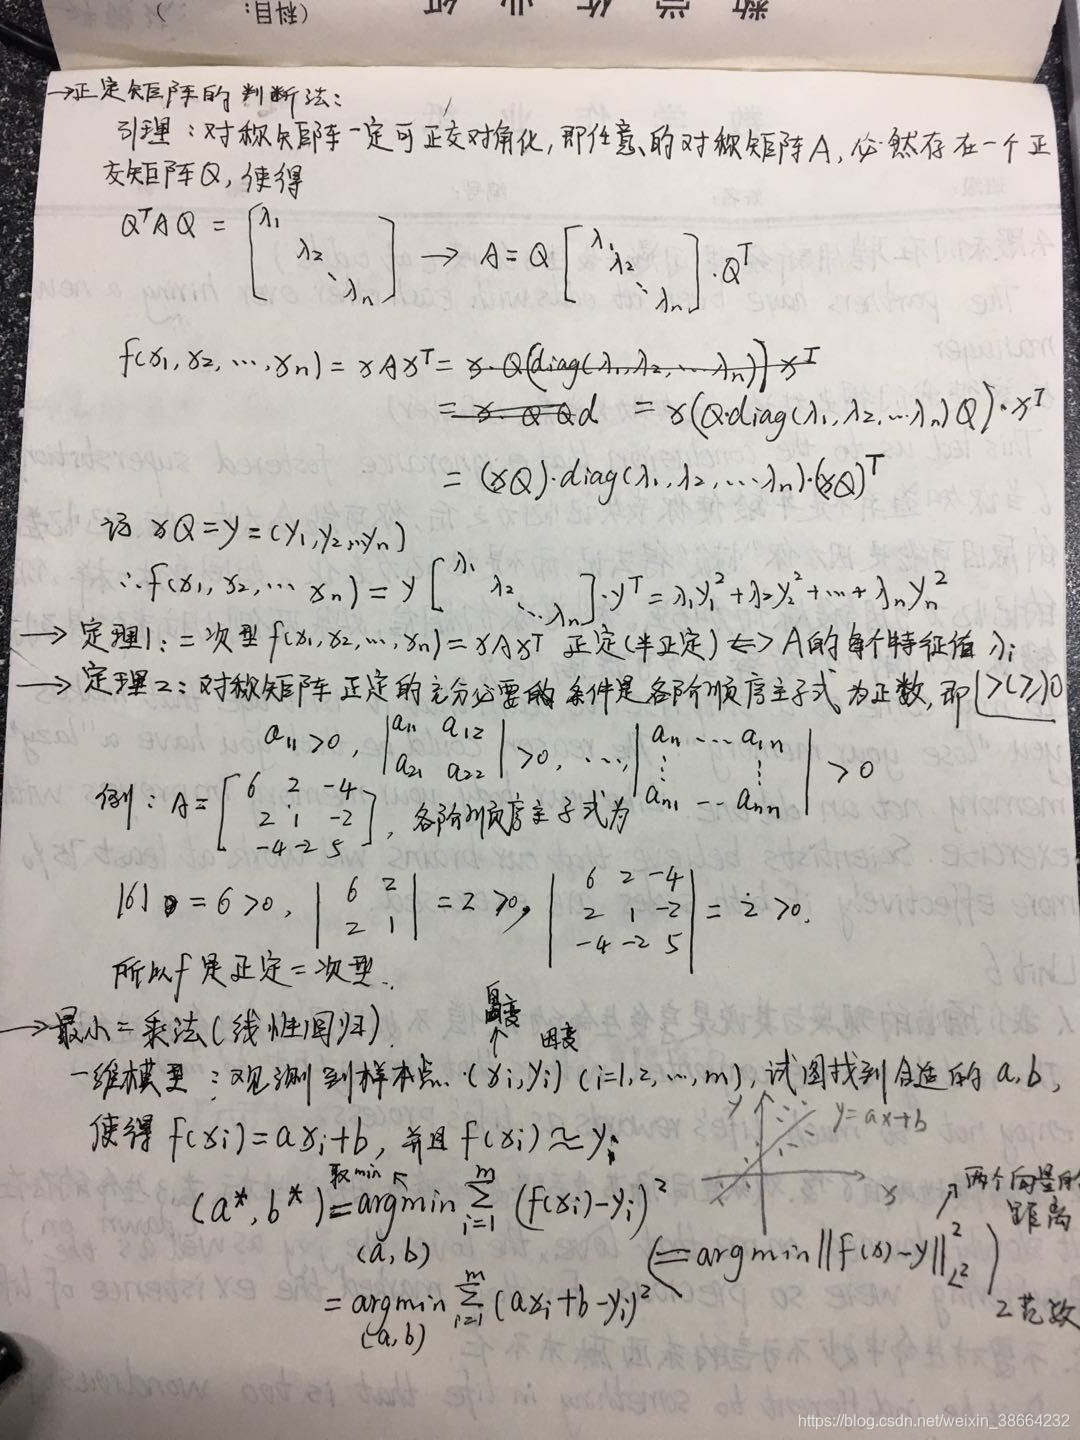 数学作业纸
(科目:                )
→正定矩阵的判断法:
引理:对称矩阵一定可正交对角化,即任意的对称矩阵A,必然存在一个正
交矩阵Q,使得
QᵀAQ = [λ₁ λ₂ ⋱ λn] → A = Q [λ₁ λ₂ ⋱ λn]·Qᵀ
f(x₁,x₂,…,xn) = xAxᵀ = x·Q(diag(λ₁,λ₂,…λn)) xᵀ
= x·QQd = x(Q·diag(λ₁,λ₂,…λn)Q)·xᵀ
= (xQ)·diag(λ₁,λ₂,…λn)·(xQ)ᵀ
设 xQ = y = (y₁,y₂,…yn)
∴f(x₁,x₂,…xn) = y [λ₁ λ₂ ⋱ λn]·yᵀ = λ₁y₁²+λ₂y₂²+…+λnyn²
→定理1:二次型f(x₁,x₂,…,xn) = xAxᵀ 正定(半正定) ⇔ A的每个特征值λi
>(≥)0
→定理2:对称矩阵正定的充分必要的条件是各阶顺序主子式为正数,即
a₁₁>0, |a₁₁ a₁₂ a₂₁ a₂₂| >0, …, |a₁₁ … a₁n ⋮ ⋮ an₁ … ann| >0
例:A = [6 2 -4 2 1 -2 -4 -2 5], 各阶顺序主子式为
|6| = 6>0, |6 2 2 1| = 2>0, |6 2 -4 2 1 -2 -4 -2 5| = 2>0.
所以f是正定二次型.
→最小二乘法(线性回归)
自变
↑ 因变
一维模型:观测到样本点 (xi,yi) (i=1,2,…,m), 试图找到合适的a,b,
使得f(xi)=axi+b, 并且f(xi)≈yi
y
y=ax+b
x
取min ↖
(a*,b*) = argmin Σ (f(xi)-yi)²
m
i=1
(a,b)
↗ 两个向量的
距离
(=argmin||f(x)-y||²L²)
2范数
= argmin Σ (axi+b-yi)²
m
i=1
(a,b)
https://blog.csdn.net/weixin_38664232